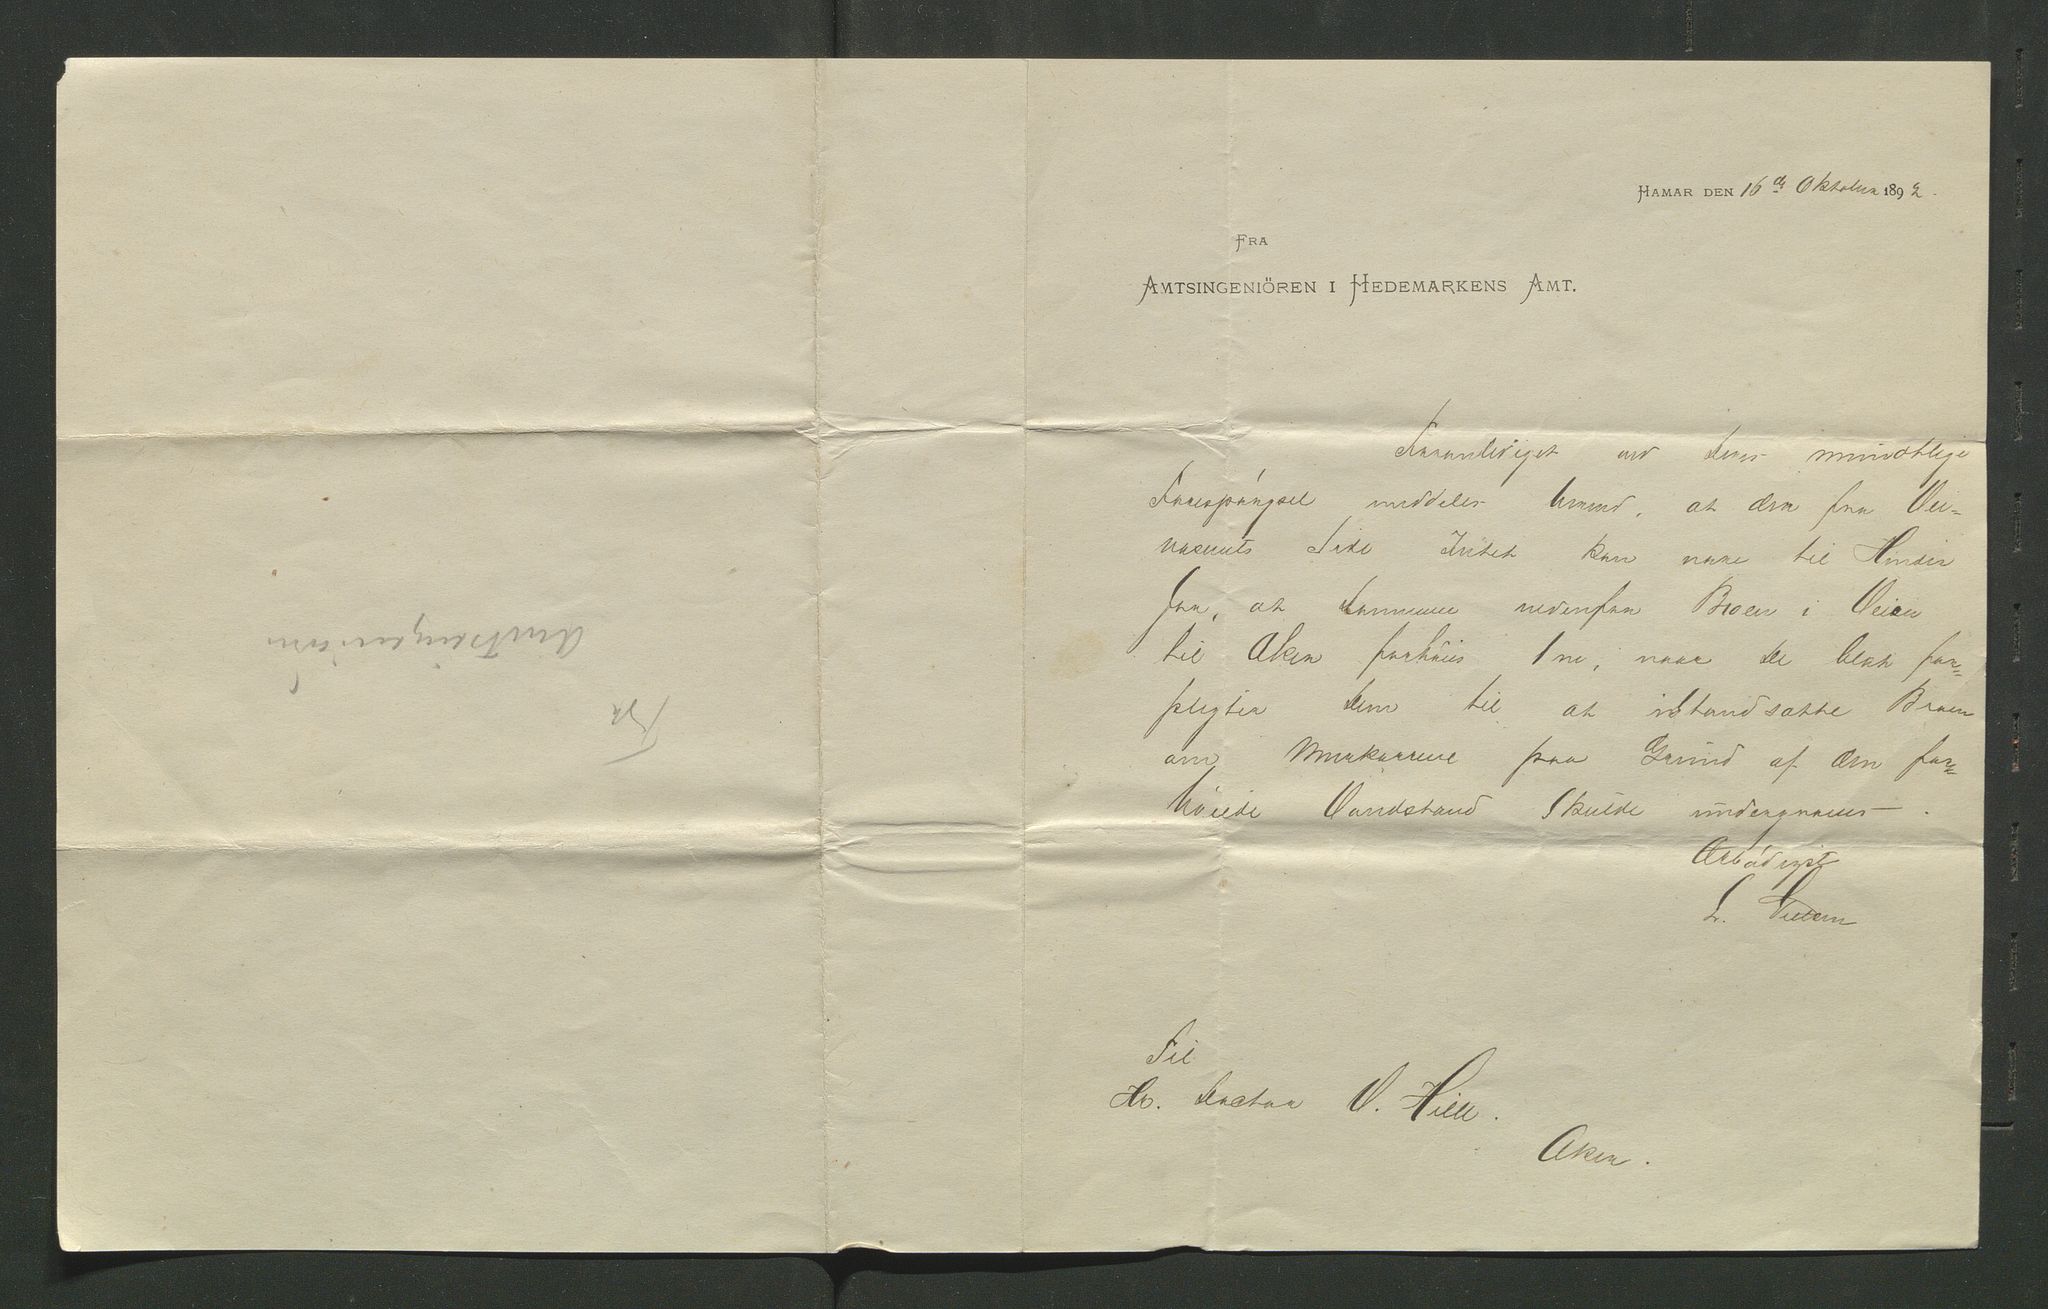 HAMAR DEN 16de Oktober 1892.
FRA
AMTSINGENIÖREN I HEDEMARKENS AMT.
Foranlediget ved Deres mundtlige
Forespørgsel meddeles herved, at der fra Vei-
væsenets Side Intet kan være til Hinder
for, at Dammen nedenfor Broen i Veien
til Aker forhøies 1 m, naar De blot for=
pligter Dem til at istandsætte Broen
om Murkarrene paa Grund af den for=
høiede Vandstand skulde undergraves.
Ærbødigst
L.
Til
Hr. Doctor V. Hille.
Aker.
Fra
Amtsingeniøren